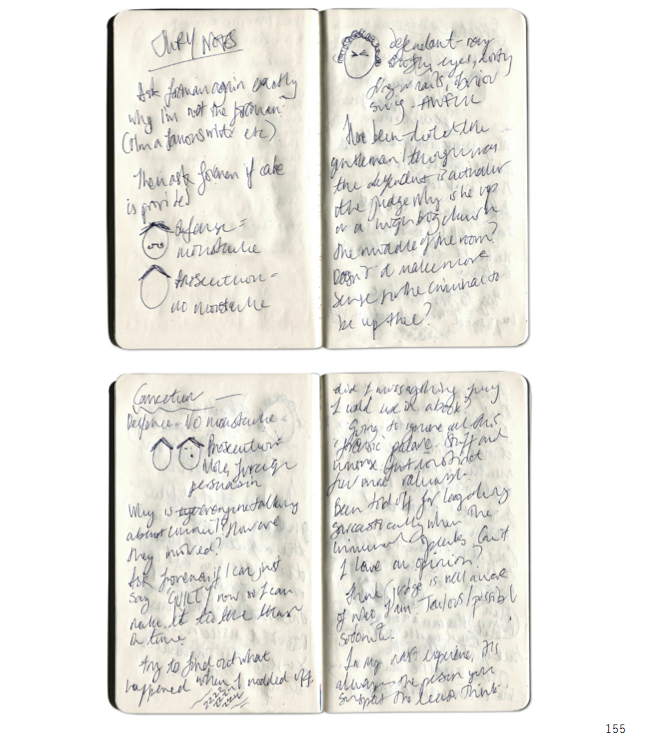 JURY NOTES
Ask foreman again exactly
why I'm not the foreman.
(I'm a famous writer etc)
Then ask foreman if cake
is provided
Defense =
moustache
Prosecution =
no moustache
defendant - very
eyes, dirty
fingernails,
- AWFUL
Have been told the
gentleman I thought was
the defendant is actually
the judge. Why is he up
on a big church
the middle of the room?
Doesn't it make more
sense for the criminal to
be up there?
Correction —
Defence - No moustache -
Prosecution =
Mole, foreign
persuasion
Why is everyone talking
about ? How are
they involved?
Ask foreman if I can just
say 'GUILTY' now so I can
make it to the
in time.
Try to find out what
happened when I nodded off
zzzz
did I miss anything juicy
I could use in a book?
Going to ignore all this
forensic palaver. Stuff and
nonsense. Gut instinct
far more
Been told off for laughing
sarcastically when the
criminal speaks. Can't
I have an opinion?
Think judge is well aware
of who I am. Jealous/possibly
In my experience, it's
always the person you
suspect the least. Think
155